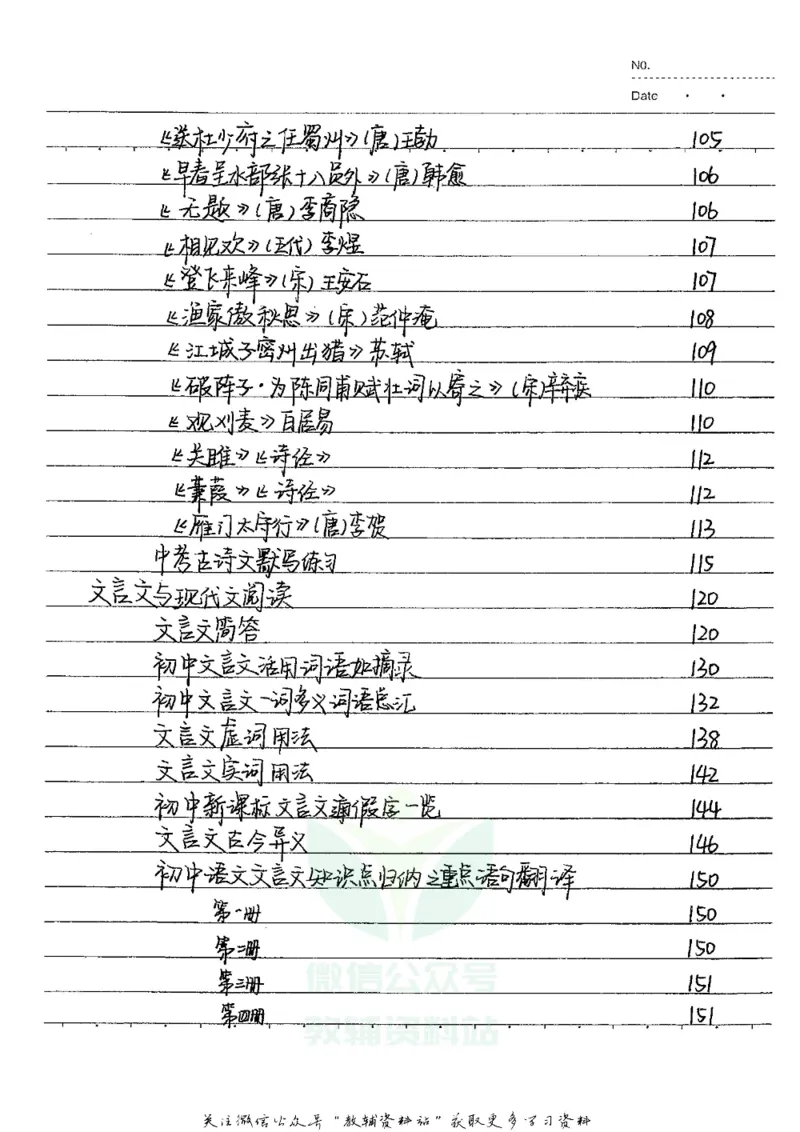 No.
Date
《送杜少府之任蜀州》(唐)王勃 105
《早春呈水部张十八员外》(唐)韩愈 106
《无题》(唐)李商隐 106
《相见欢》(五代)李煜 107
《登飞来峰》(宋)王安石 107
《渔家傲秋思》(宋)范仲淹 108
《江城子密州出猎》苏轼 109
《破阵子·为陈同甫赋壮词以寄之》(宋)辛弃疾 110
《观刈麦》白居易 110
《关雎》《诗经》 112
《蒹葭》《诗经》 112
《雁门太守行》(唐)李贺 113
中考古诗文默写练习 115
文言文与现代文阅读 120
文言文简答 120
初中文言文活用词语如摘录 130
初中文言文一词多义词语总汇 132
文言文虚词用法 138
文言文实词用法 142
初中新课标文言文通假字一览 144
文言文古今异义 146
初中语文文言文知识点归纳之重点语句翻译 150
第一册 150
第二册 150
第三册 151
第四册 151
微信公众号
教辅资料站
关注微信公众号"教辅资料站"获取更多学习资料